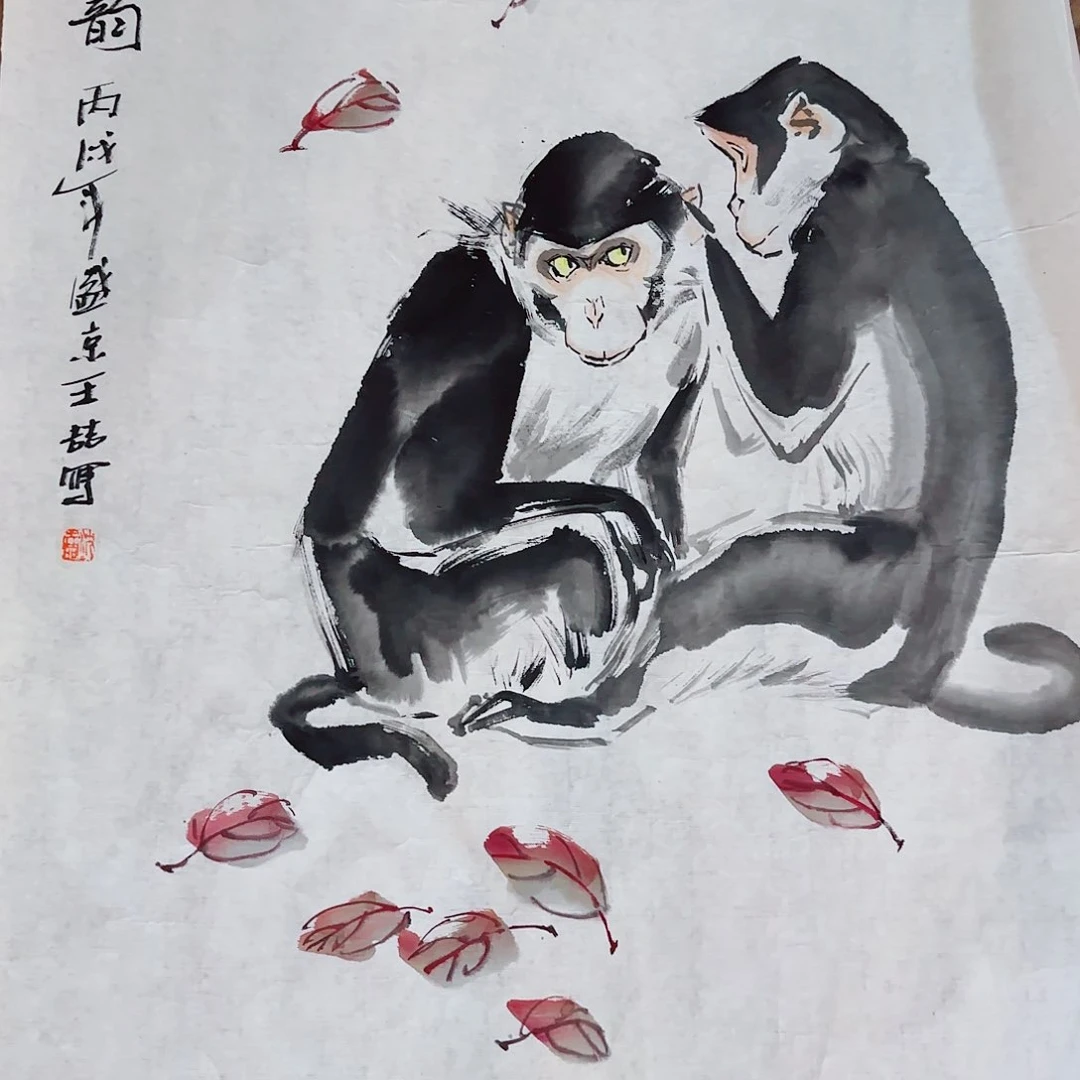 韵 丙戌年盛京王喆写